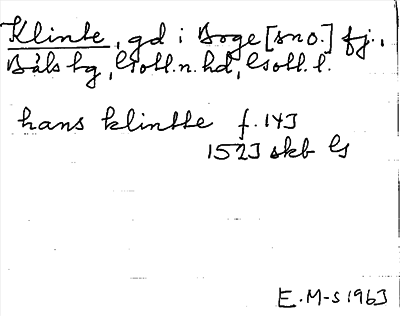 Klinte, gd i Boge [sno.] fj.,
Båls hg, Gotl. n. hd, Gotl. l.
hans klintte f. 143
1523 skb G
E. M-s 1963